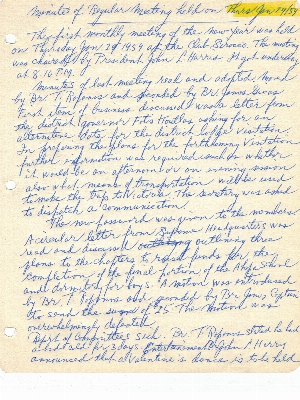 Minutes of Regular Meeting held on Thurs Jan 29/59
The first monthly meeting of the New Year was held
on Thursday Jan 29 1959 at the Club. The meeting
was chaired by President John L Harris. He got underway
at 8:10 P.M.
Minutes of last meeting read and adopted, moved
by Br. T. and seconded by Br. James
First item of business discussed was a letter from
the district governor asking for an
alternative date for the district Visitation.
In preparing the plans for the forthcoming Visitation
further information was required such as whether
it would be an afternoon or an evening session
also what means of transportation will be used
to make the trip to Victoria. The secretary was asked
to dispatch a communication.
The new password was given to the members
A circular letter from Supreme Headquarters was
read and discussed outlining their
plans to the chapters to raise funds for the
completion of the final portion of the School
and dormitory for boys. A motion was introduced
by Br. T. and seconded by Br. James
to send the sum of 25. The motion was
overwhelmingly defeated.
Report of Committees Sick. Br. T. stated he had
a for 3 days. Entertainment John L Harry
announced that a Valentine's dance is to be held